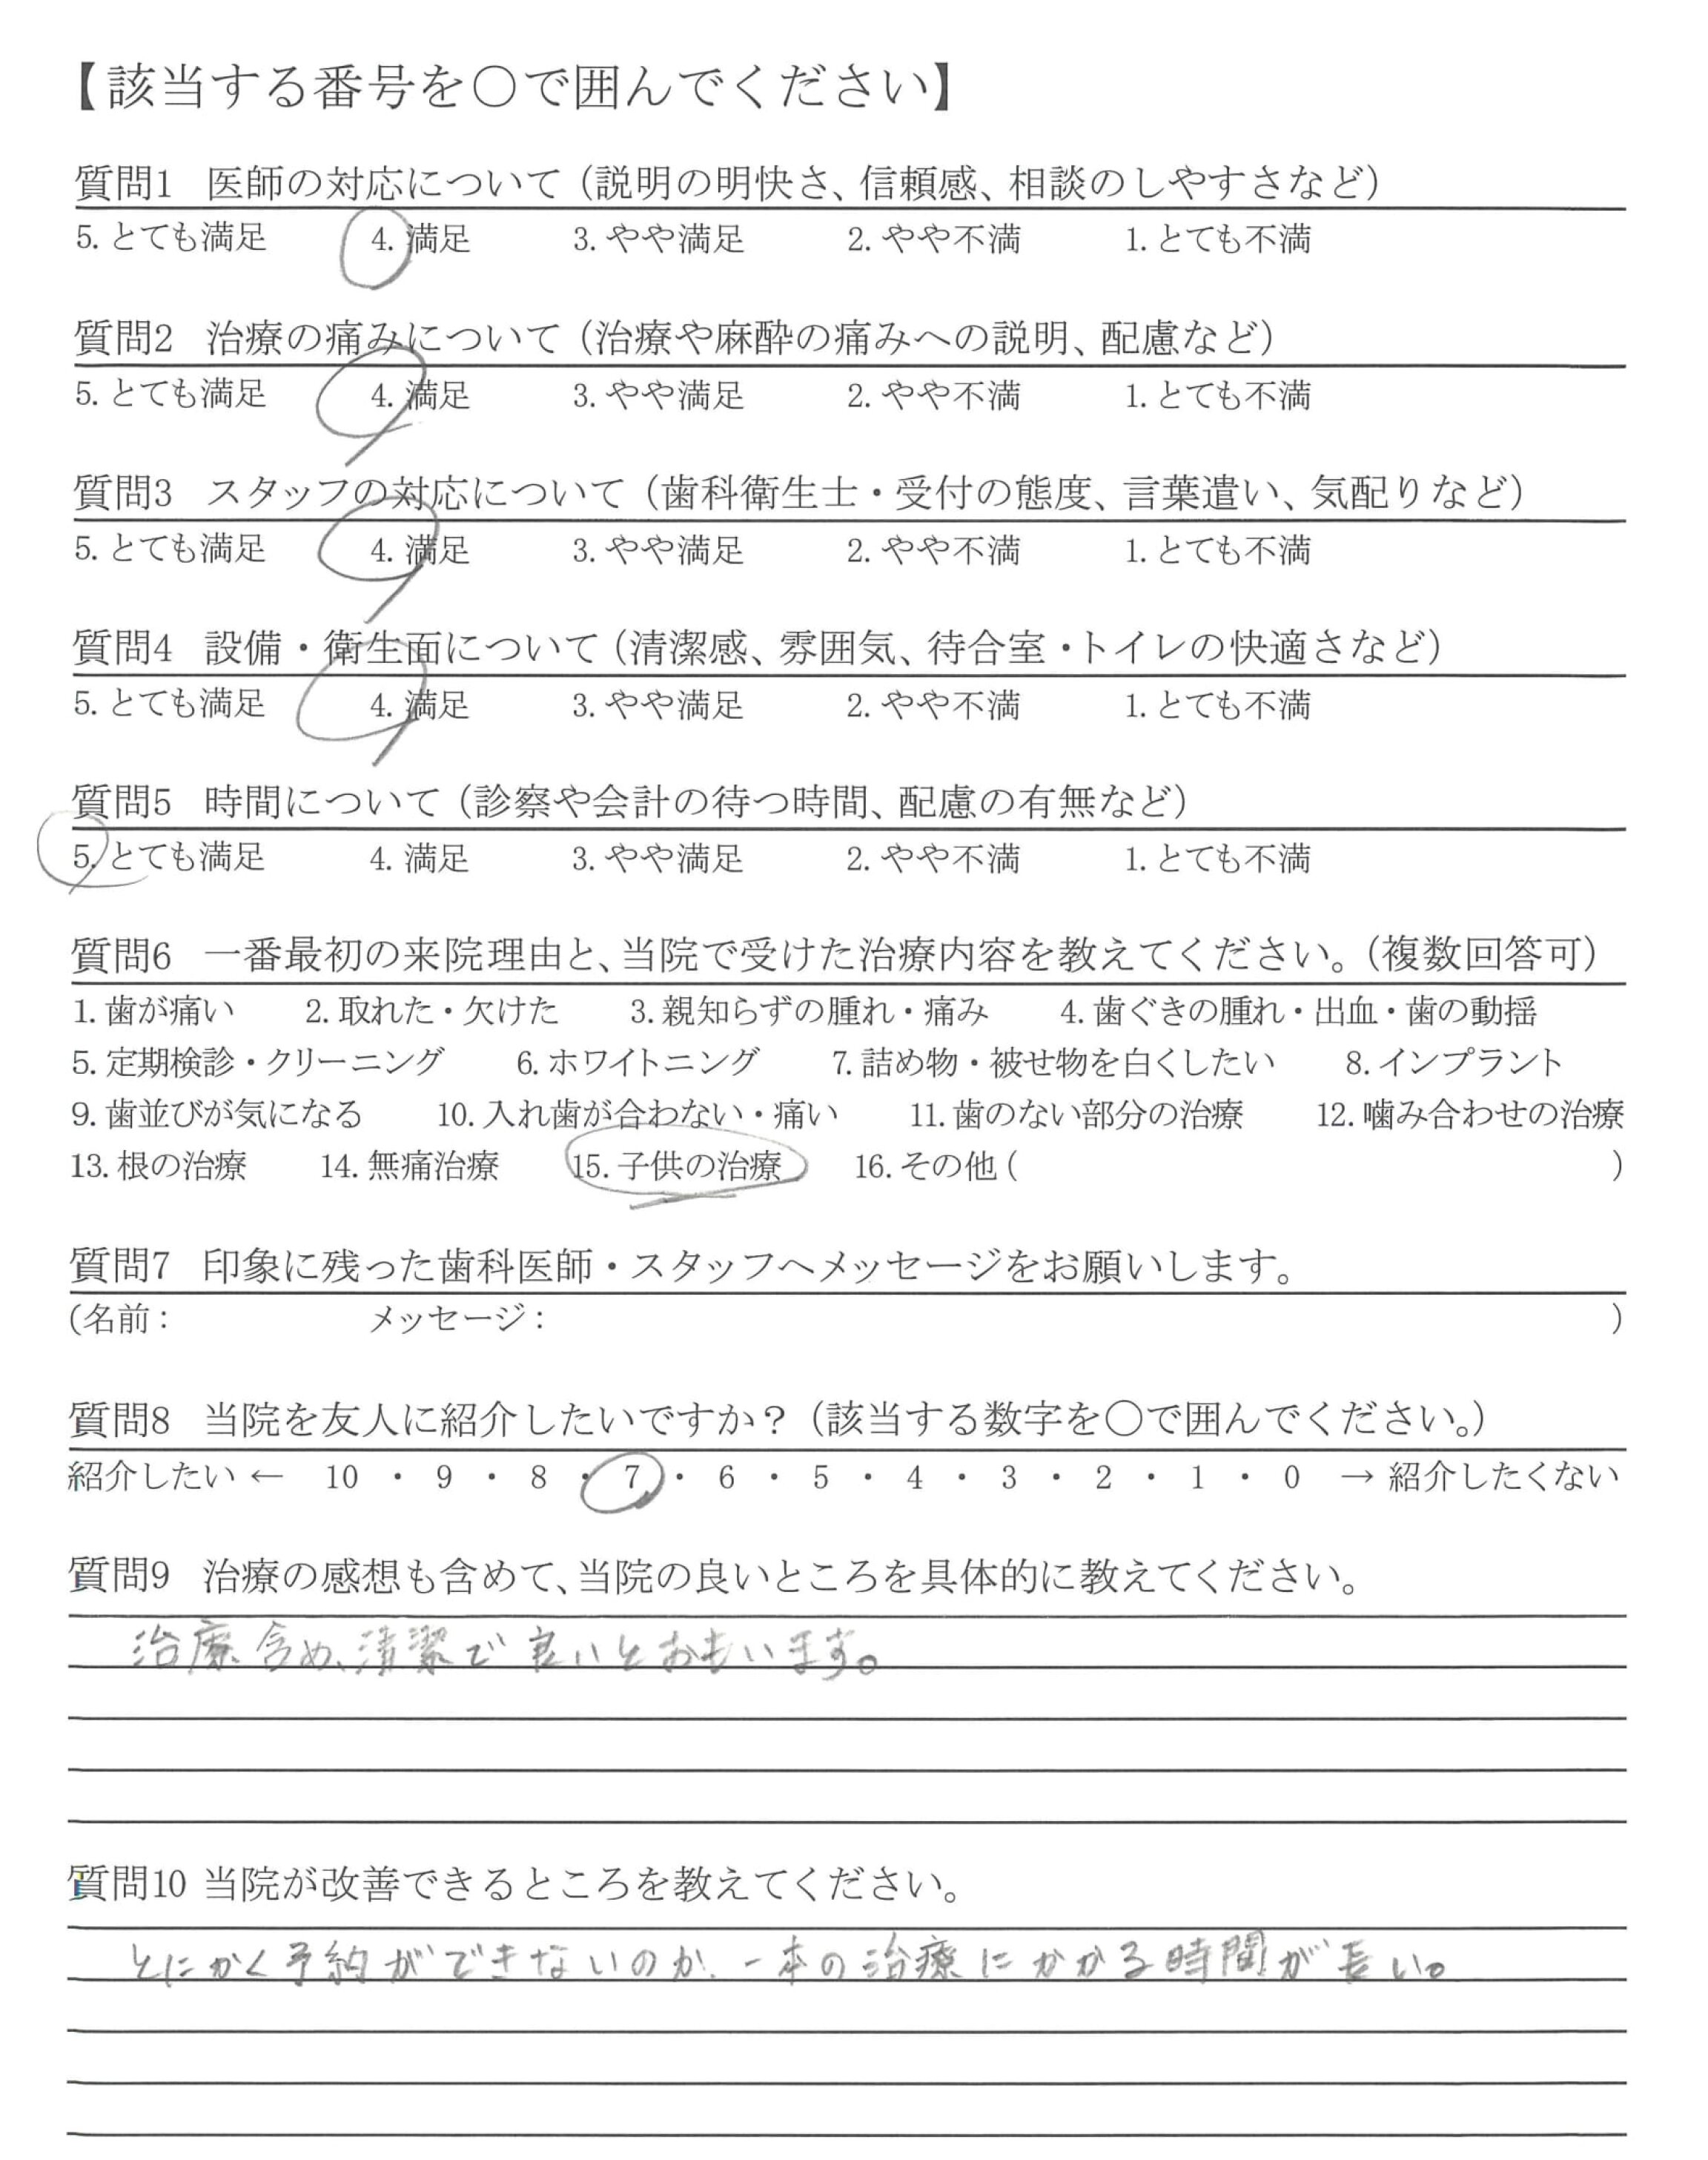 【該当する番号を〇で囲んでください】
質問1 医師の対応について（説明の明快さ、信頼感、相談のしやすさなど）
5. とても満足 4. 満足 3. やや満足 2. やや不満 1. とても不満
質問2 治療の痛みについて（治療や麻酔の痛みへの説明、配慮など）
5. とても満足 4. 満足 3. やや満足 2. やや不満 1. とても不満
質問3 スタッフの対応について（歯科衛生士・受付の態度、言葉遣い、気配りなど）
5. とても満足 4. 満足 3. やや満足 2. やや不満 1. とても不満
質問4 設備・衛生面について（清潔感、雰囲気、待合室・トイレの快適さなど）
5. とても満足 4. 満足 3. やや満足 2. やや不満 1. とても不満
質問5 時間について（診察や会計の待つ時間、配慮の有無など）
5. とても満足 4. 満足 3. やや満足 2. やや不満 1. とても不満
質問6 一番最初の来院理由と、当院で受けた治療内容を教えてください。（複数回答可）
1. 歯が痛い 2. 取れた・欠けた 3. 親知らずの腫れ・痛み 4. 歯ぐきの腫れ・出血・歯の動揺
5. 定期検診・クリーニング 6. ホワイトニング 7. 詰め物・被せ物を白くしたい 8. インプラント
9. 歯並びが気になる 10. 入れ歯が合わない・痛い 11. 歯のない部分の治療 12. 噛み合わせの治療
13. 根の治療 14. 無痛治療 15. 子供の治療 16. その他（ ）
質問7 印象に残った歯科医師・スタッフへメッセージをお願いします。
（名前： メッセージ： ）
質問8 当院を友人に紹介したいですか？（該当する数字を〇で囲んでください。）
紹介したい ← 10 ・ 9 ・ 8 ・ 7 ・ 6 ・ 5 ・ 4 ・ 3 ・ 2 ・ 1 ・ 0 → 紹介したくない
質問9 治療の感想も含めて、当院の良いところを具体的に教えてください。
治療含め、清潔で良いとおもいます。
質問10 当院が改善できるところを教えてください。
とにかく予約ができないのか、一本の治療にかかる時間が長い。